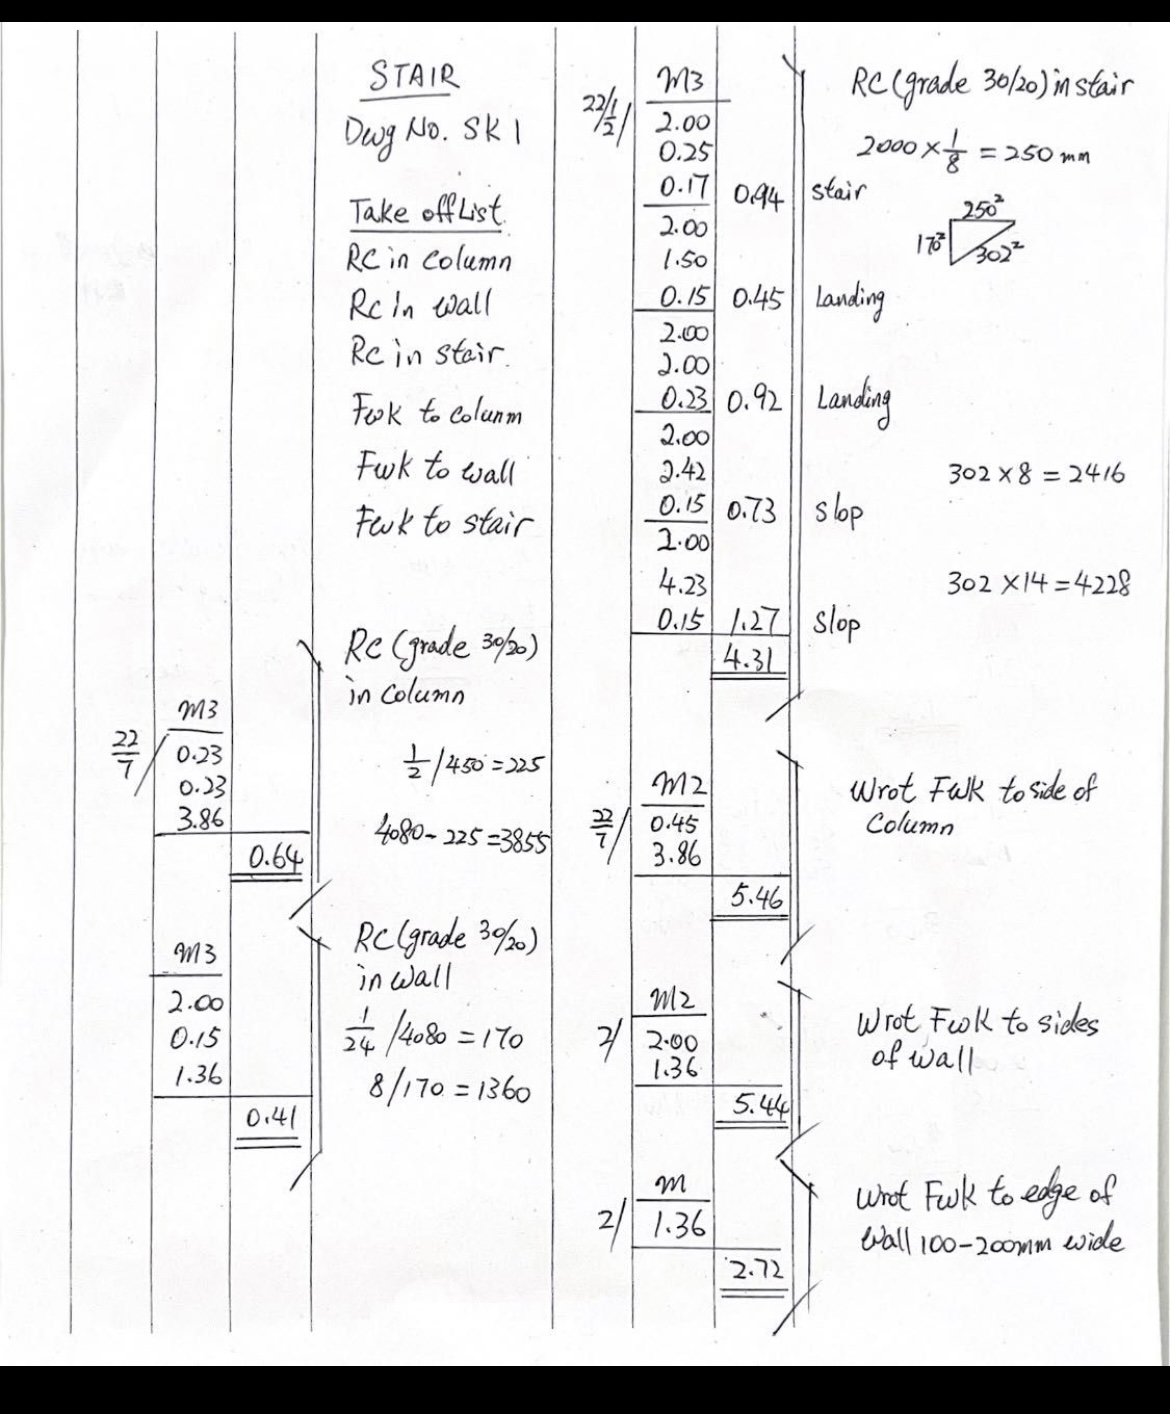 STAIR
Dwg No. SK 1
Take off List.
RC in column
Rc in wall
Rc in stair.
Fwk to colunm
Fwk to wall
Fwk to stair
RC (grade 30/20)
in column
M3
22/7/ 0.23
0.23
3.86
0.64
1/2 /450 = 225
4080 - 225 = 3855
RC (grade 30/20)
in wall
M3
2.00
0.15
1.36
0.41
1/24 /4080 = 170
8/170 = 1360
M3
RC (grade 30/20) in stair
22/1/2/ 2.00
0.25
0.17 0.94 stair
2000 × 1/8 = 250 mm
250²
170²
302²
2.00
1.50
0.15 0.45 Landing
2.00
2.00
0.23 0.92 Landing
2.00
2.42
0.15 0.73 slop
302 × 8 = 2416
2.00
4.23
0.15 1.27 slop
302 × 14 = 4228
4.31
M2
Wrot Fwk to side of
Column
22/7/ 0.45
3.86
5.46
M2
Wrot Fwk to sides
of wall
2/ 2.00
1.36
5.44
M
Wrot Fwk to edge of
wall 100-200mm wide
2/ 1.36
2.72